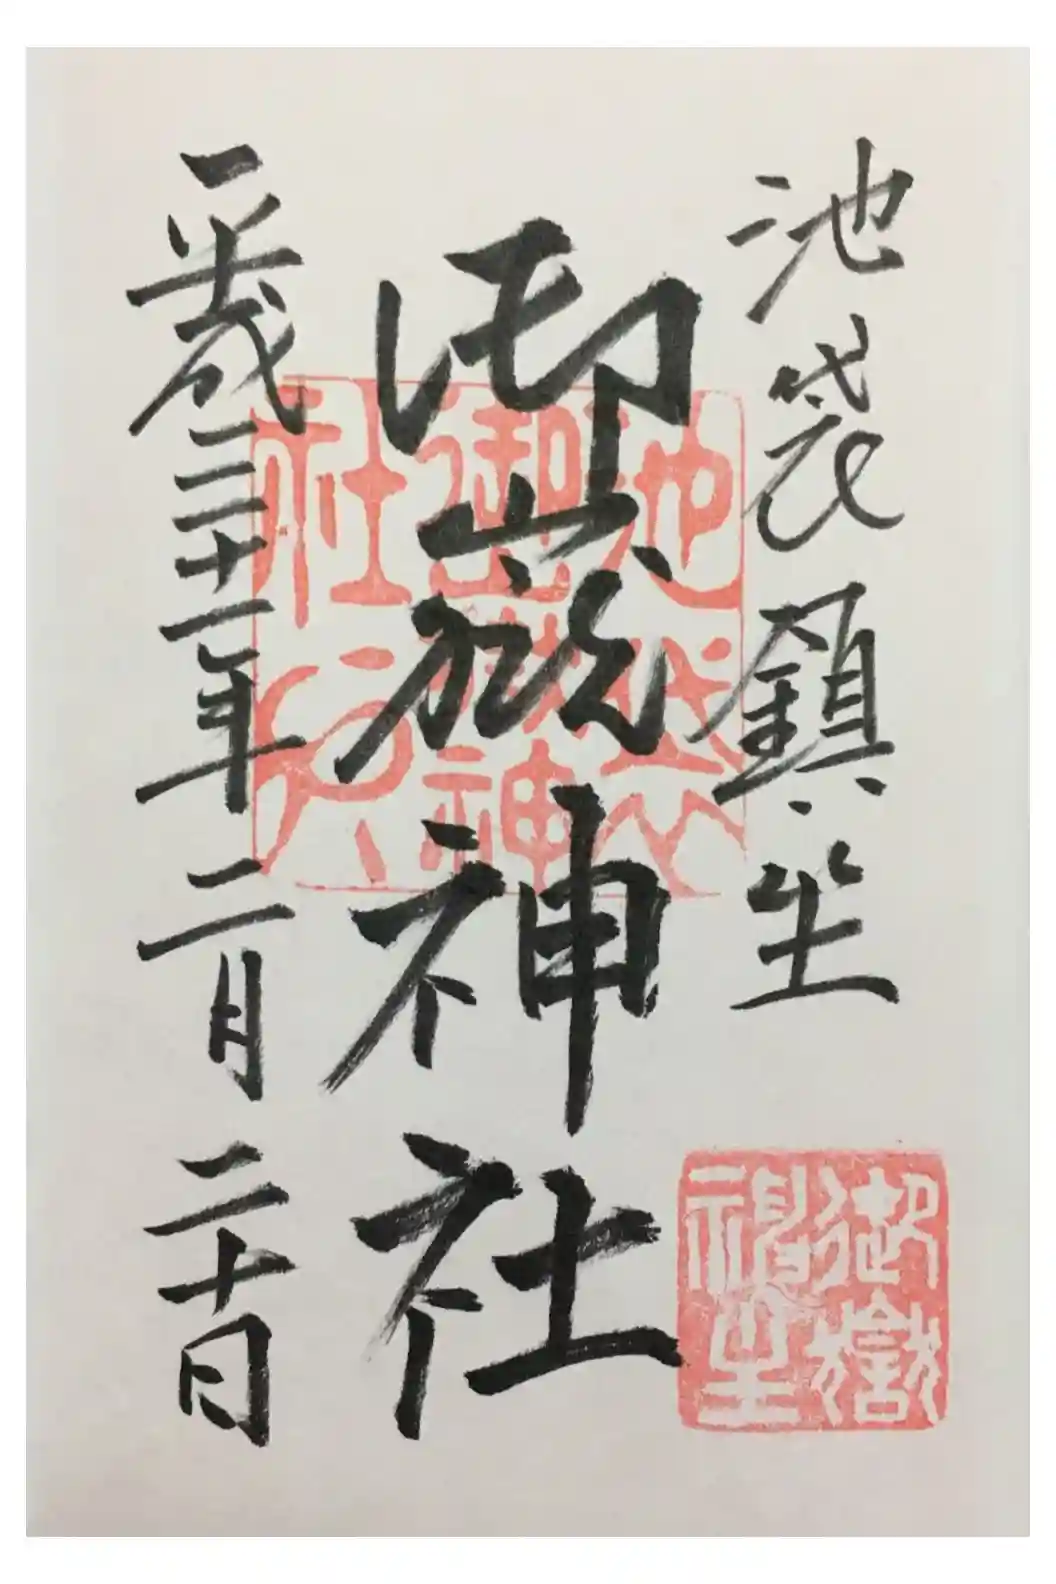 池袋鎮坐
御嶽神社
平成三十一年二月二十日
池袋
御嶽神
社
御嶽